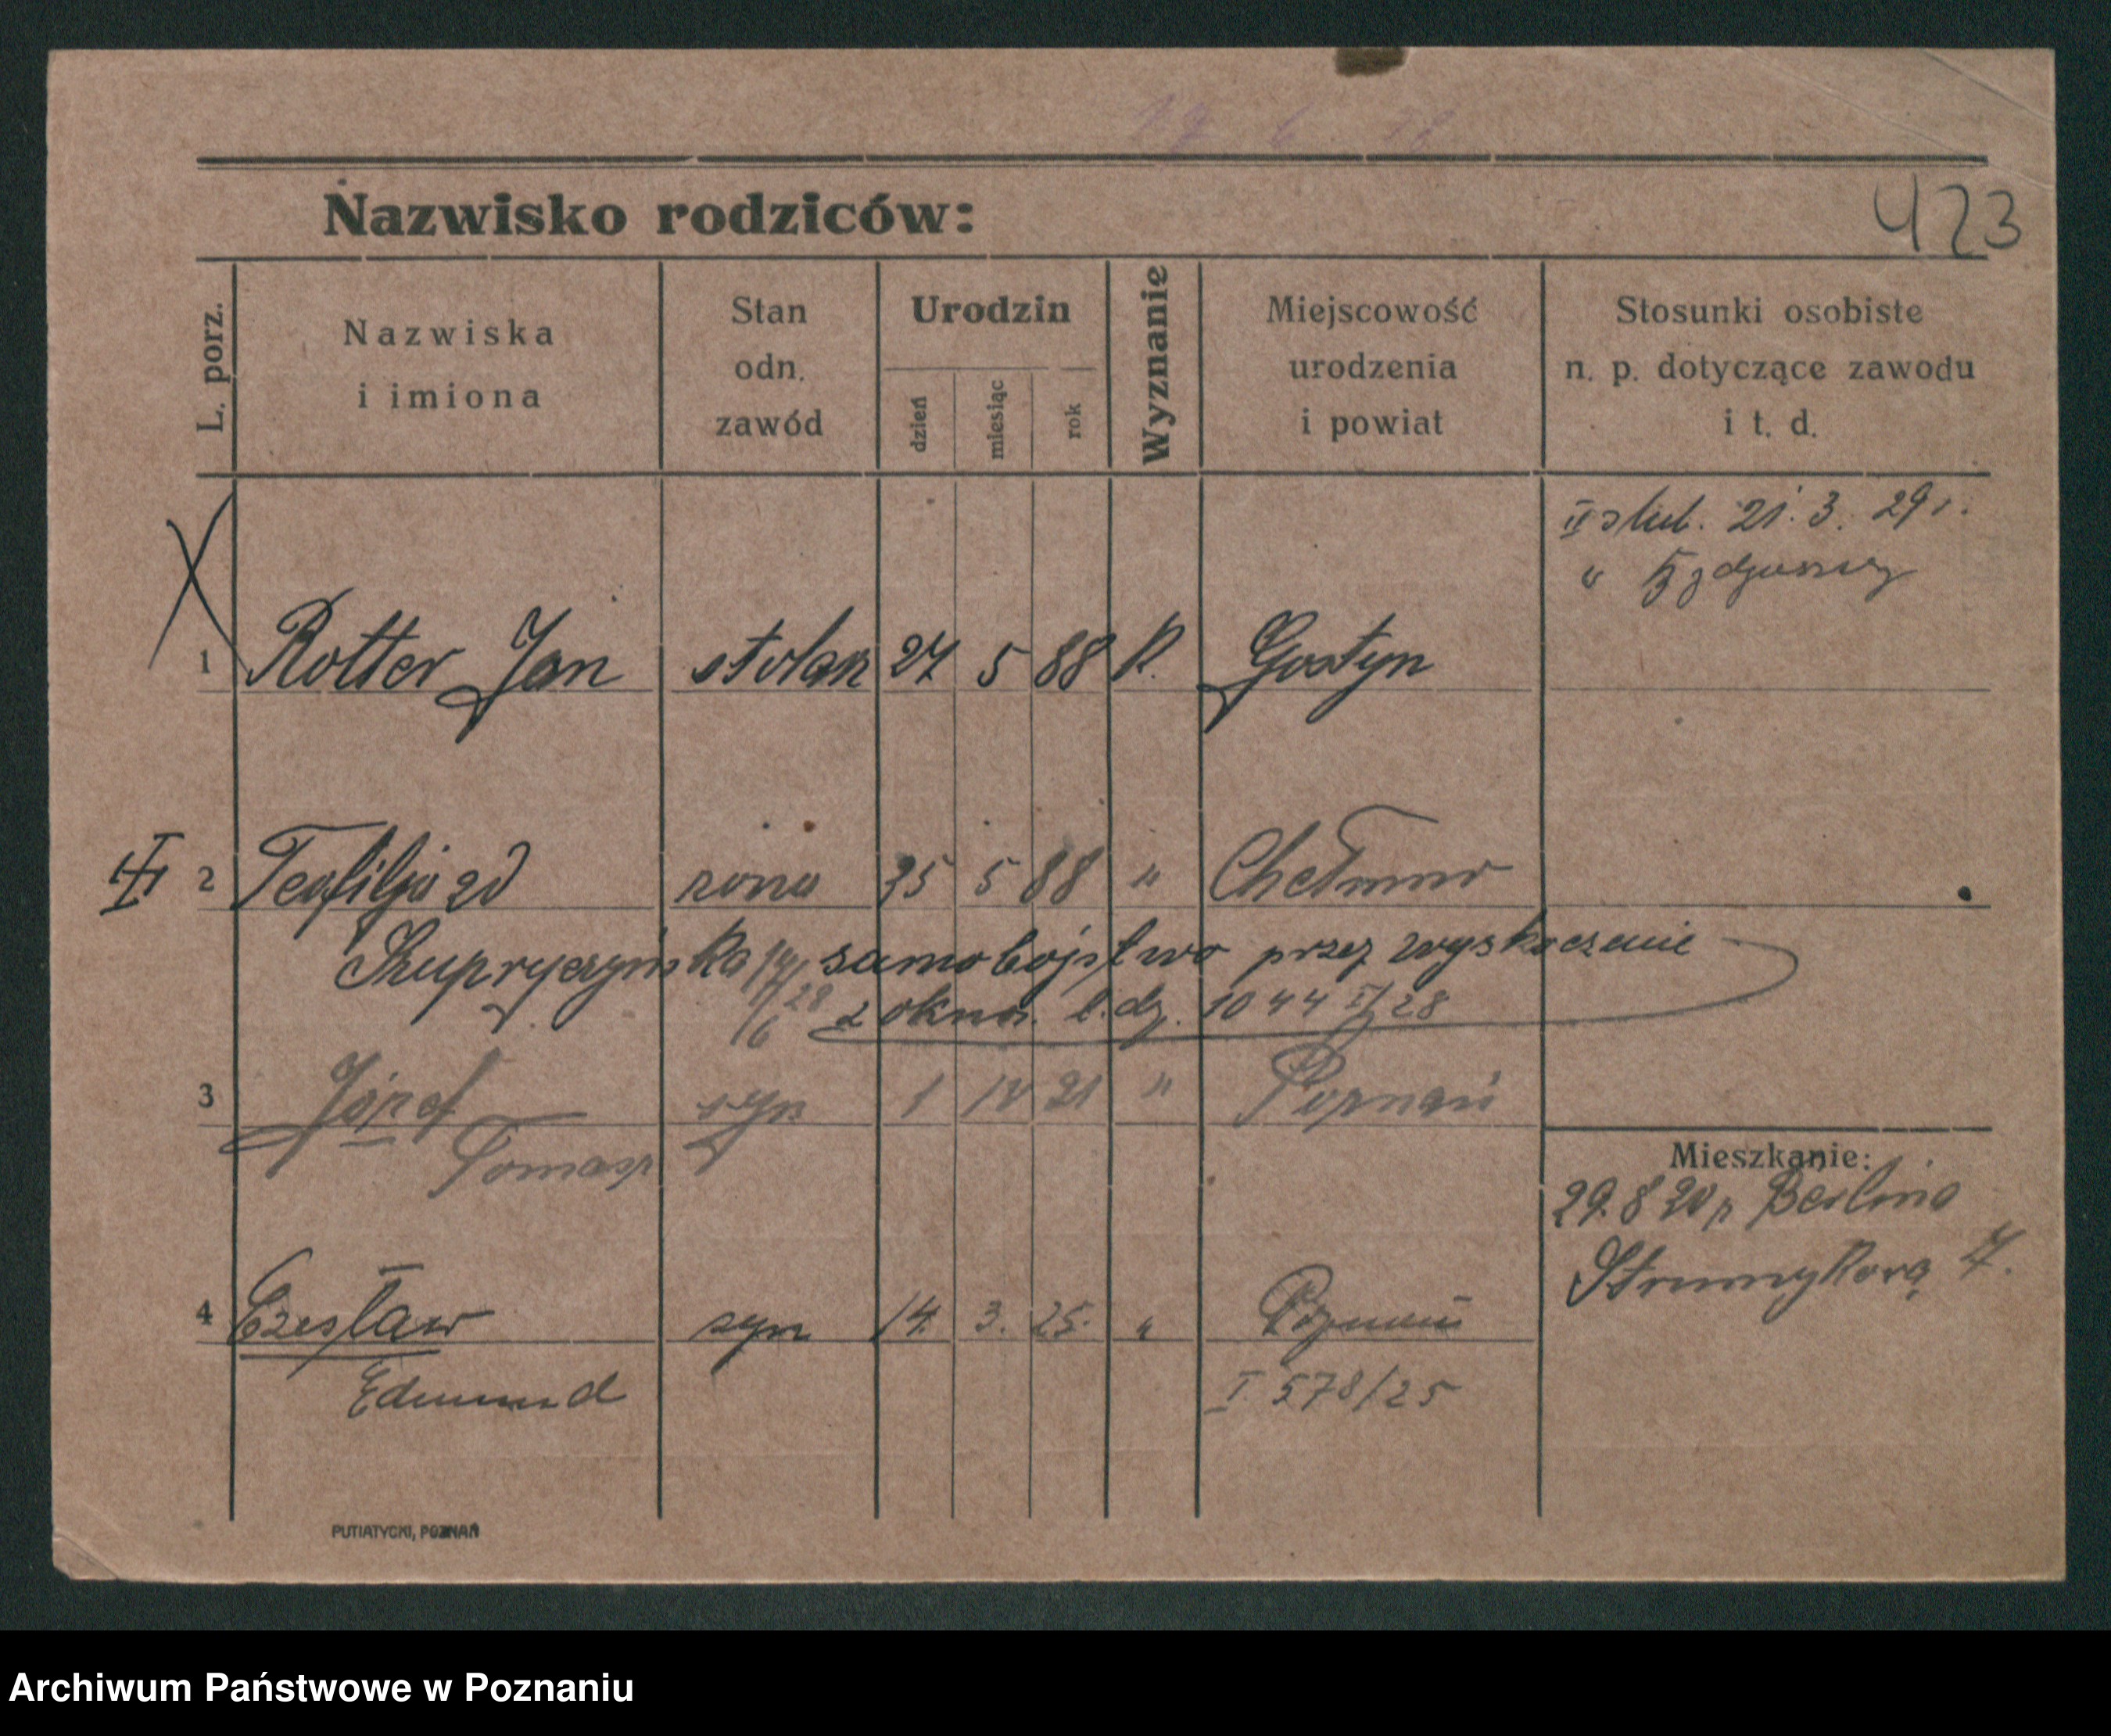 Nazwisko rodziców:
423
L. porz.
Nazwiska
i imiona
Stan
odn.
zawód
Urodzin
dzień
miesiąc
rok
Wyznanie
Miejscowość
urodzenia
i powiat
Stosunki osobiste
n. p. dotyczące zawodu
i t. d.
II ślub. 21. 3. 29 r.
" Bydgoszcz
1 Rotter Jan stolarz 27 5 88 K. Gostyn
2 Teofilja zd żona 25 5 88 " Chełmno
Kupryczyńska 14/6 28 samobójstwo przez wyskoczenie
z okna. l. dz. 1044 II/28
3 Józef syn 1 12 21 " Poznań
Tomasz
Mieszkanie:
29. 8 20 z Berlina
Strumykowa 7.
4 Czesław syn 14. 3. 25. " Poznań
Edmund
I 578/25
PUTIATYCKI, POZNAŃ
Archiwum Państwowe w Poznaniu